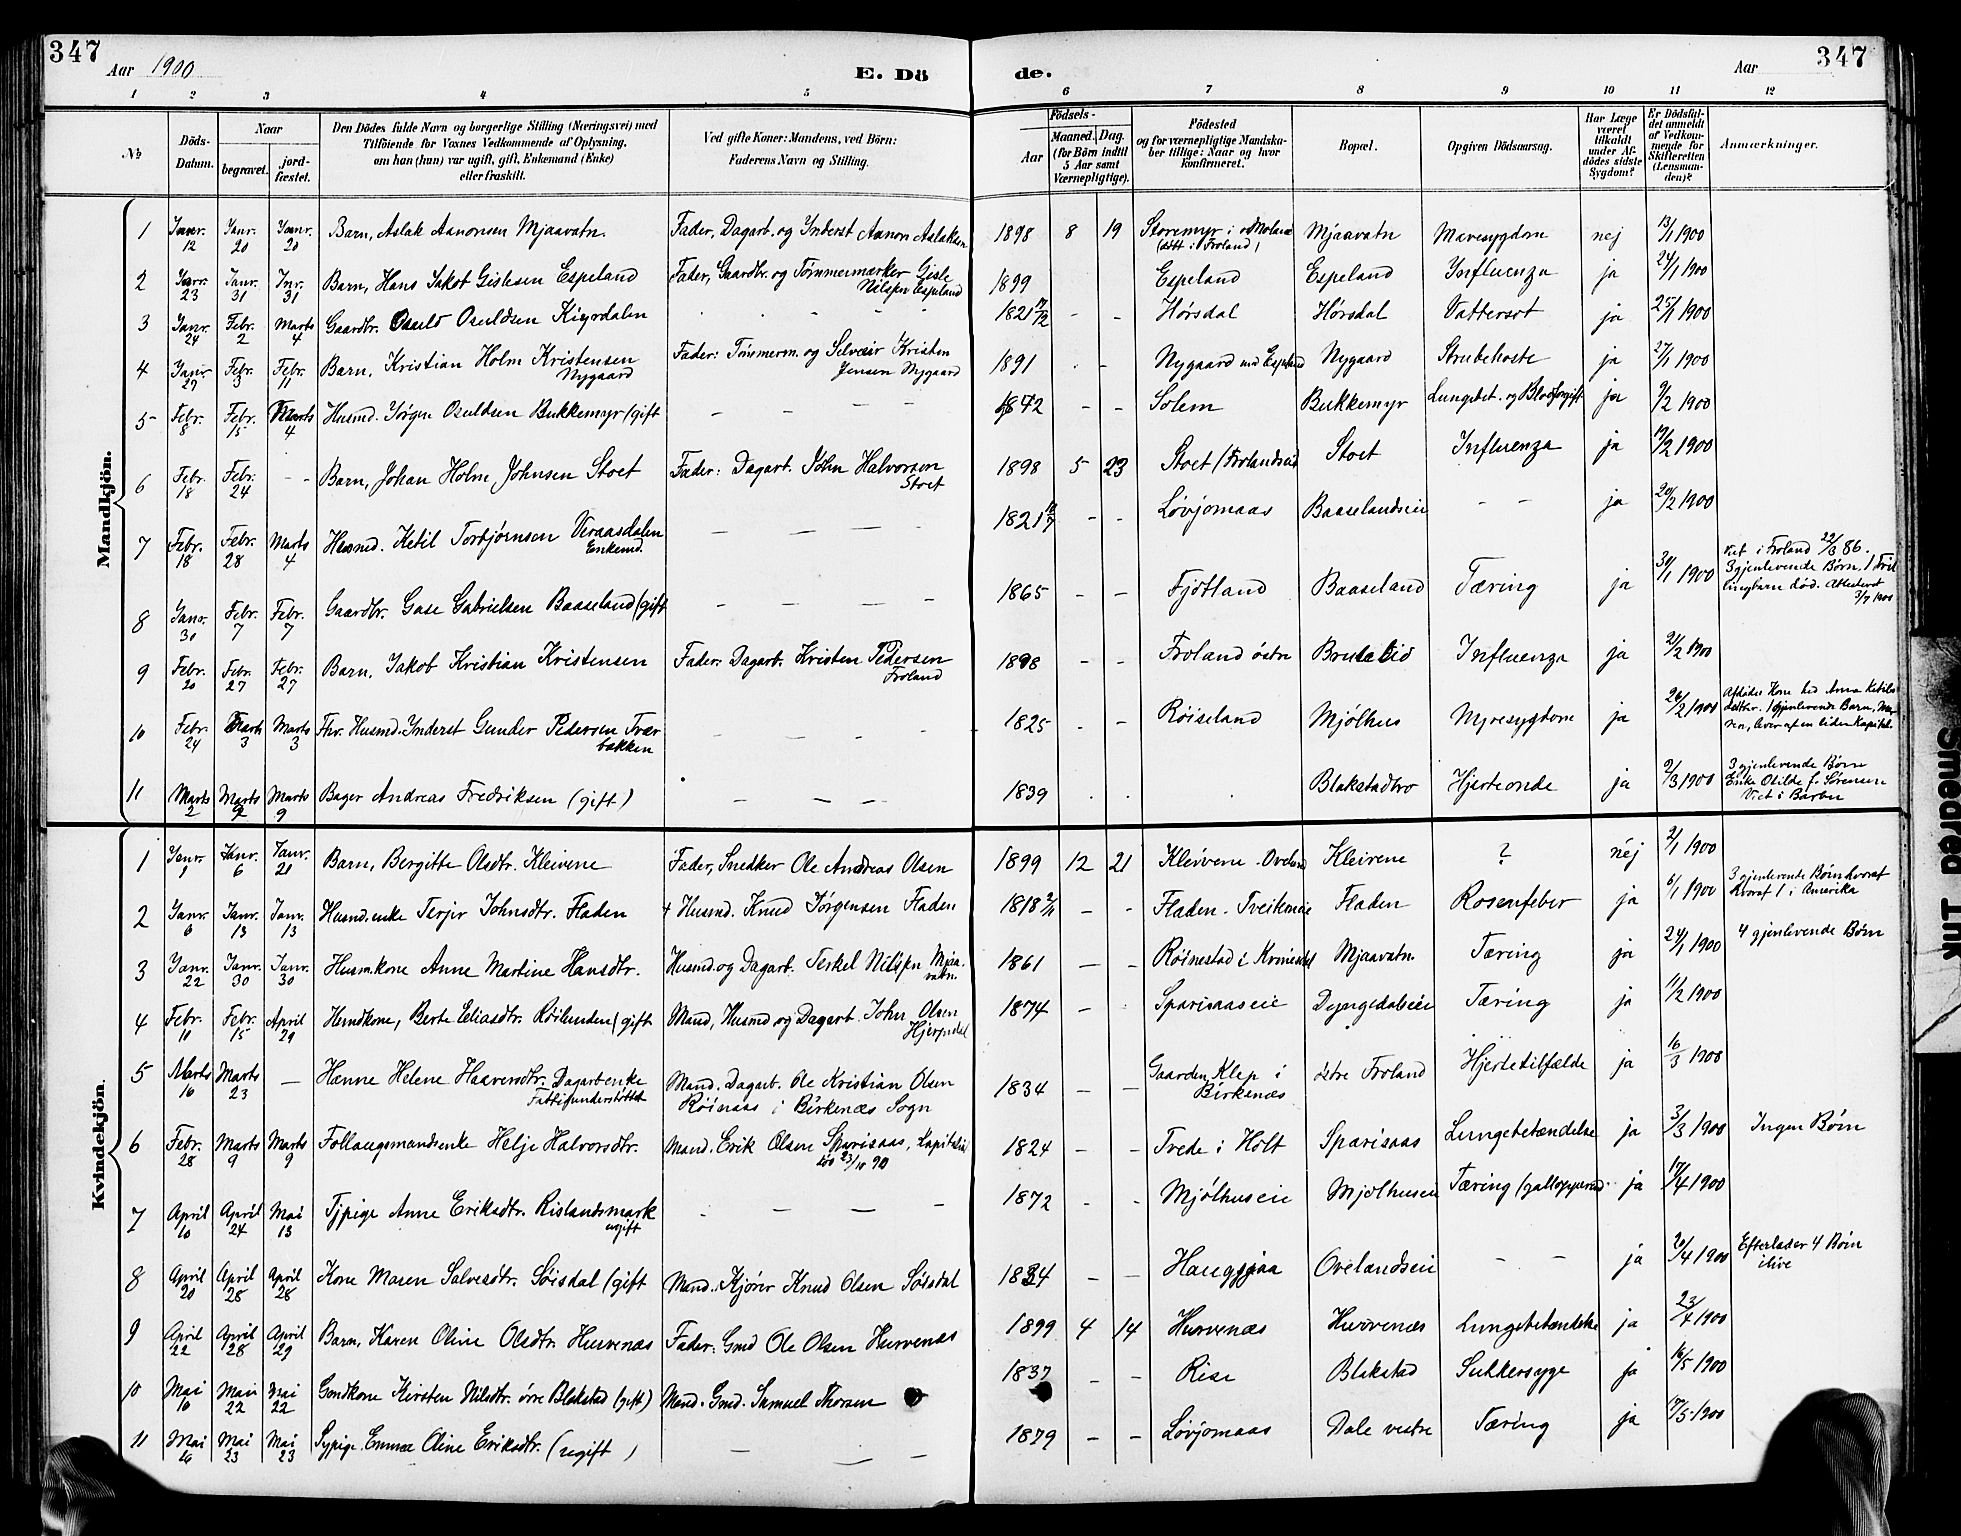 347
Aar 1900
E. Dö
de.
Aar
347
1 2 3 4 5 6 7 8 9 10 11 12
No.
Döds-Datum.
Naar
begravet.
jord-fæstet.
Den Dödes fulde Navn og borgerlige Stilling (Næringsvei) med
Tilföiende for Voxnes Vedkommende af Oplysning,
om han (hun) var ugift, gift, Enkemand (Enke)
eller fraskilt.
Ved gifte Koner: Mandens, ved Börn:
Faderens Navn og Stilling.
Födsels-
Aar
Maaned. Dag.
(for Börn indtil
5 Aar samt
Værnepligtige).
Födested
og for værnepligtige Mandska-
ber tillige: Naar og hvor
konfirmeret.
Bopæl.
Opgiven Dödsaarsag.
Har Læge
været
tilkaldt
under Af-
dödes sidste
Sygdom?
Er Dödsfal-
det anmeldt
af Vedkom-
mende for
Skifteretten
(Lensman-
den)?
Anmærkninger.
Mandkjön.
1 Janr. 12 Janr. 20 Janr. 20 Barn, Aslak Aanonsen Mjaavatn. Fader, Dagarb. og Inderst Aanon Aslaksen 1898 8 19 Storemyr i Moland (födt i Froland) Mjaavatn Mavesygdom nej 13/1 1900
2 Janr. 23 Janr. 31 Jnr. 31 Barn, Hans Jakob Gislesen Espeland Fader, Gaardbr. og Tømmermærker Gisle Nilssen Espeland 1899 Espeland Espeland Influenza ja 24/1 1900
3 Janr. 24 Febr. 2 Marts 4 Gaardbr. Osuld Osuldsen 1821 17/2 - - Hørsdal Hørsdal Vattersot ja 25/1 1900
4 Janr. 27 Febr. 3 Febr. 11 Barn, Kristian Holm Kristensen Nygaard Fader: Tømmerm. og Selveier Kristen Jensen Nygaard 1891 - Nygaard und Espeland Nygaard Strubehoste ja 27/1 1900
5 Febr. 8 Febr. 15 Marts 4 Husmd. Jörgen Osuldsen Bukkemyr (gift - - - - 1842 - - Solem Bukkemyr Lungebet. og Blodforgift ja 9/2 1900
6 Febr. 18 Febr. 24 - - Barn, Johan Holm Johnsen Stoet Fader: Dagarb. John Halvorsen Stoet 1898 5 23 Stoet (Frolandseie Stoet Influenza ja 19/2 1900
7 Febr. 18 Febr. 28 Marts 4 Husmd. Ketil Torbjørnsen Veraasdalen Enkemd. - - - - 1821 - - Løvjomaas Baaselandseie - - ja 20/2 1900
8 Janr. 30 Febr. 7 Febr. 7 Gaardbr. Gabrielsen Baaseland (gift - - - - 1865 - - Fjotland Baaseland Tæring ja 31/1 1900 i Froland 22/3 86. 3 gjenlevende Børn, 1 død.
9 Febr. 20 Febr. 27 Febr. 27 Barn, Jakob Kristian Kristensen Fader: Dagarb. Kristen Pedersen Froland 1898 - - Froland östre Influenza ja 21/2 1900
10 Febr. 24 Marts 3 Marts 3 Fhv. Husmd. Inderst Gunder Pedersen Tvær bakken - - - - 1825 - - Røiseland Mjölhus ja 26/2 1900 Afdödes Kone hed Anna Ketils datter. 1 gjenlevende Barn, lever af en liden Kapital.
11 Marts 2 Marts 9 Marts 9 Bager Andreas Fredriksen (gift) - - - 1839 Blakstadbro Hjerteonde ja 9/3 1900 3 gjenlevende Börn Enke Otilde f. Sörensen Viet i Barbu
Kvindekjön.
1 Janr. 1 Janr. 6 Janr. 21 Barn, Bergitte Olsdtr. Kleivene Fader, Snedker Ole Andreas Olsen 1899 12 21 Kleivene - Oveland Kleivene ? nej 2/1 1900
2 Janr. 6 Janr. 13 Janr. 13 Husmd.enke Terjer Johnsdtr. Fladen + Husmd. Knud Jörgensen Fladen 1818 - - Fladen - Tveitmeie Fladen Rosenfeber ja 6/1 1900 3 gjenlevende Børn hvoraf 1 i Amerika
3 Janr. 22 Janr. 30 Janr. 30 Husm.kone Anne Martine Hansdtr. Husmd. og Dagarb. Terkel Nilssen Mjaavatn. 1861 - - Röinestad i Kvinesdal Mjaavatn Tæring ja 24/1 1900 4 gjenlevende Børn
4 Febr. 10 Febr. 15 April 29 Husmdkone, Berte Eliasdtr. Röilunden (gift Mand, Husmd og Dagarb. John Olsen 1874 - Sparsaaseie Dyngedalseie Tæring ja 11/2 1900
5 Marts 16 Marts 23 - Hanne Helene Haaversdtr. Dagarb.enke Fattigunderstöttet Mand. Dagarb. Ole Kristian Olsen Röinaas i Birkenæs Sogn 1834 - - Gaarden Klep i Birkenæs östre Froland Hjertetilfælde ja 16/3 1900
6 Febr. 28 Marts 9 Marts 9 Follaugsmandsenke Helje Halvorsdtr. Mand. Erik Olsen Sparsaas, Kapitalist död 23/10 90 1824 - - Tvede i Holt Sparsaas Lungebetændelse ja 3/3 1900 Ingen Börn
7 April 10 April 24 Mai 13 Tjpige Anne Eriksdtr. Rislandsmark ugift - - - - 1872 - - Mjölhuseie Mjölhuseie Tæring (gallopperend. ja 17/4 1900
8 April 20 April 28 April 28 Kone Maren Salvesdtr. Söisdal (gift Mand. Kjörer Knud Olsen Söisdal 1834 - - Haugsjaa Ovelandseie - - ja 21/4 1900 Efterlader 4 Börn ilive
9 April 22 April 28 April 29 Barn, Karen Oline Olsdtr. Hurvenæs Fader: Gmd Ole Olsen Hurvenæs 1899 4 14 Hurvenæs Hurvenæs Lungebetændelse ja 23/4 1900
10 Mai 10 Mai 22 Mai 22 Gmdkone Kirsten Nilsdtr. övre Blakstad (gift) Mand. Gmd. Samuel Thorsen 1837 - - Rise Blakstad Sukkersyge ja 16/5 1900
11 Mai 16 Mai 23 Mai 23 Sypige Emma Oline Eriksdtr. (ugift) - - - 1879 - - Løvjomaas Dale vestre Tæring ja 17/5 1900
Smedred Ink